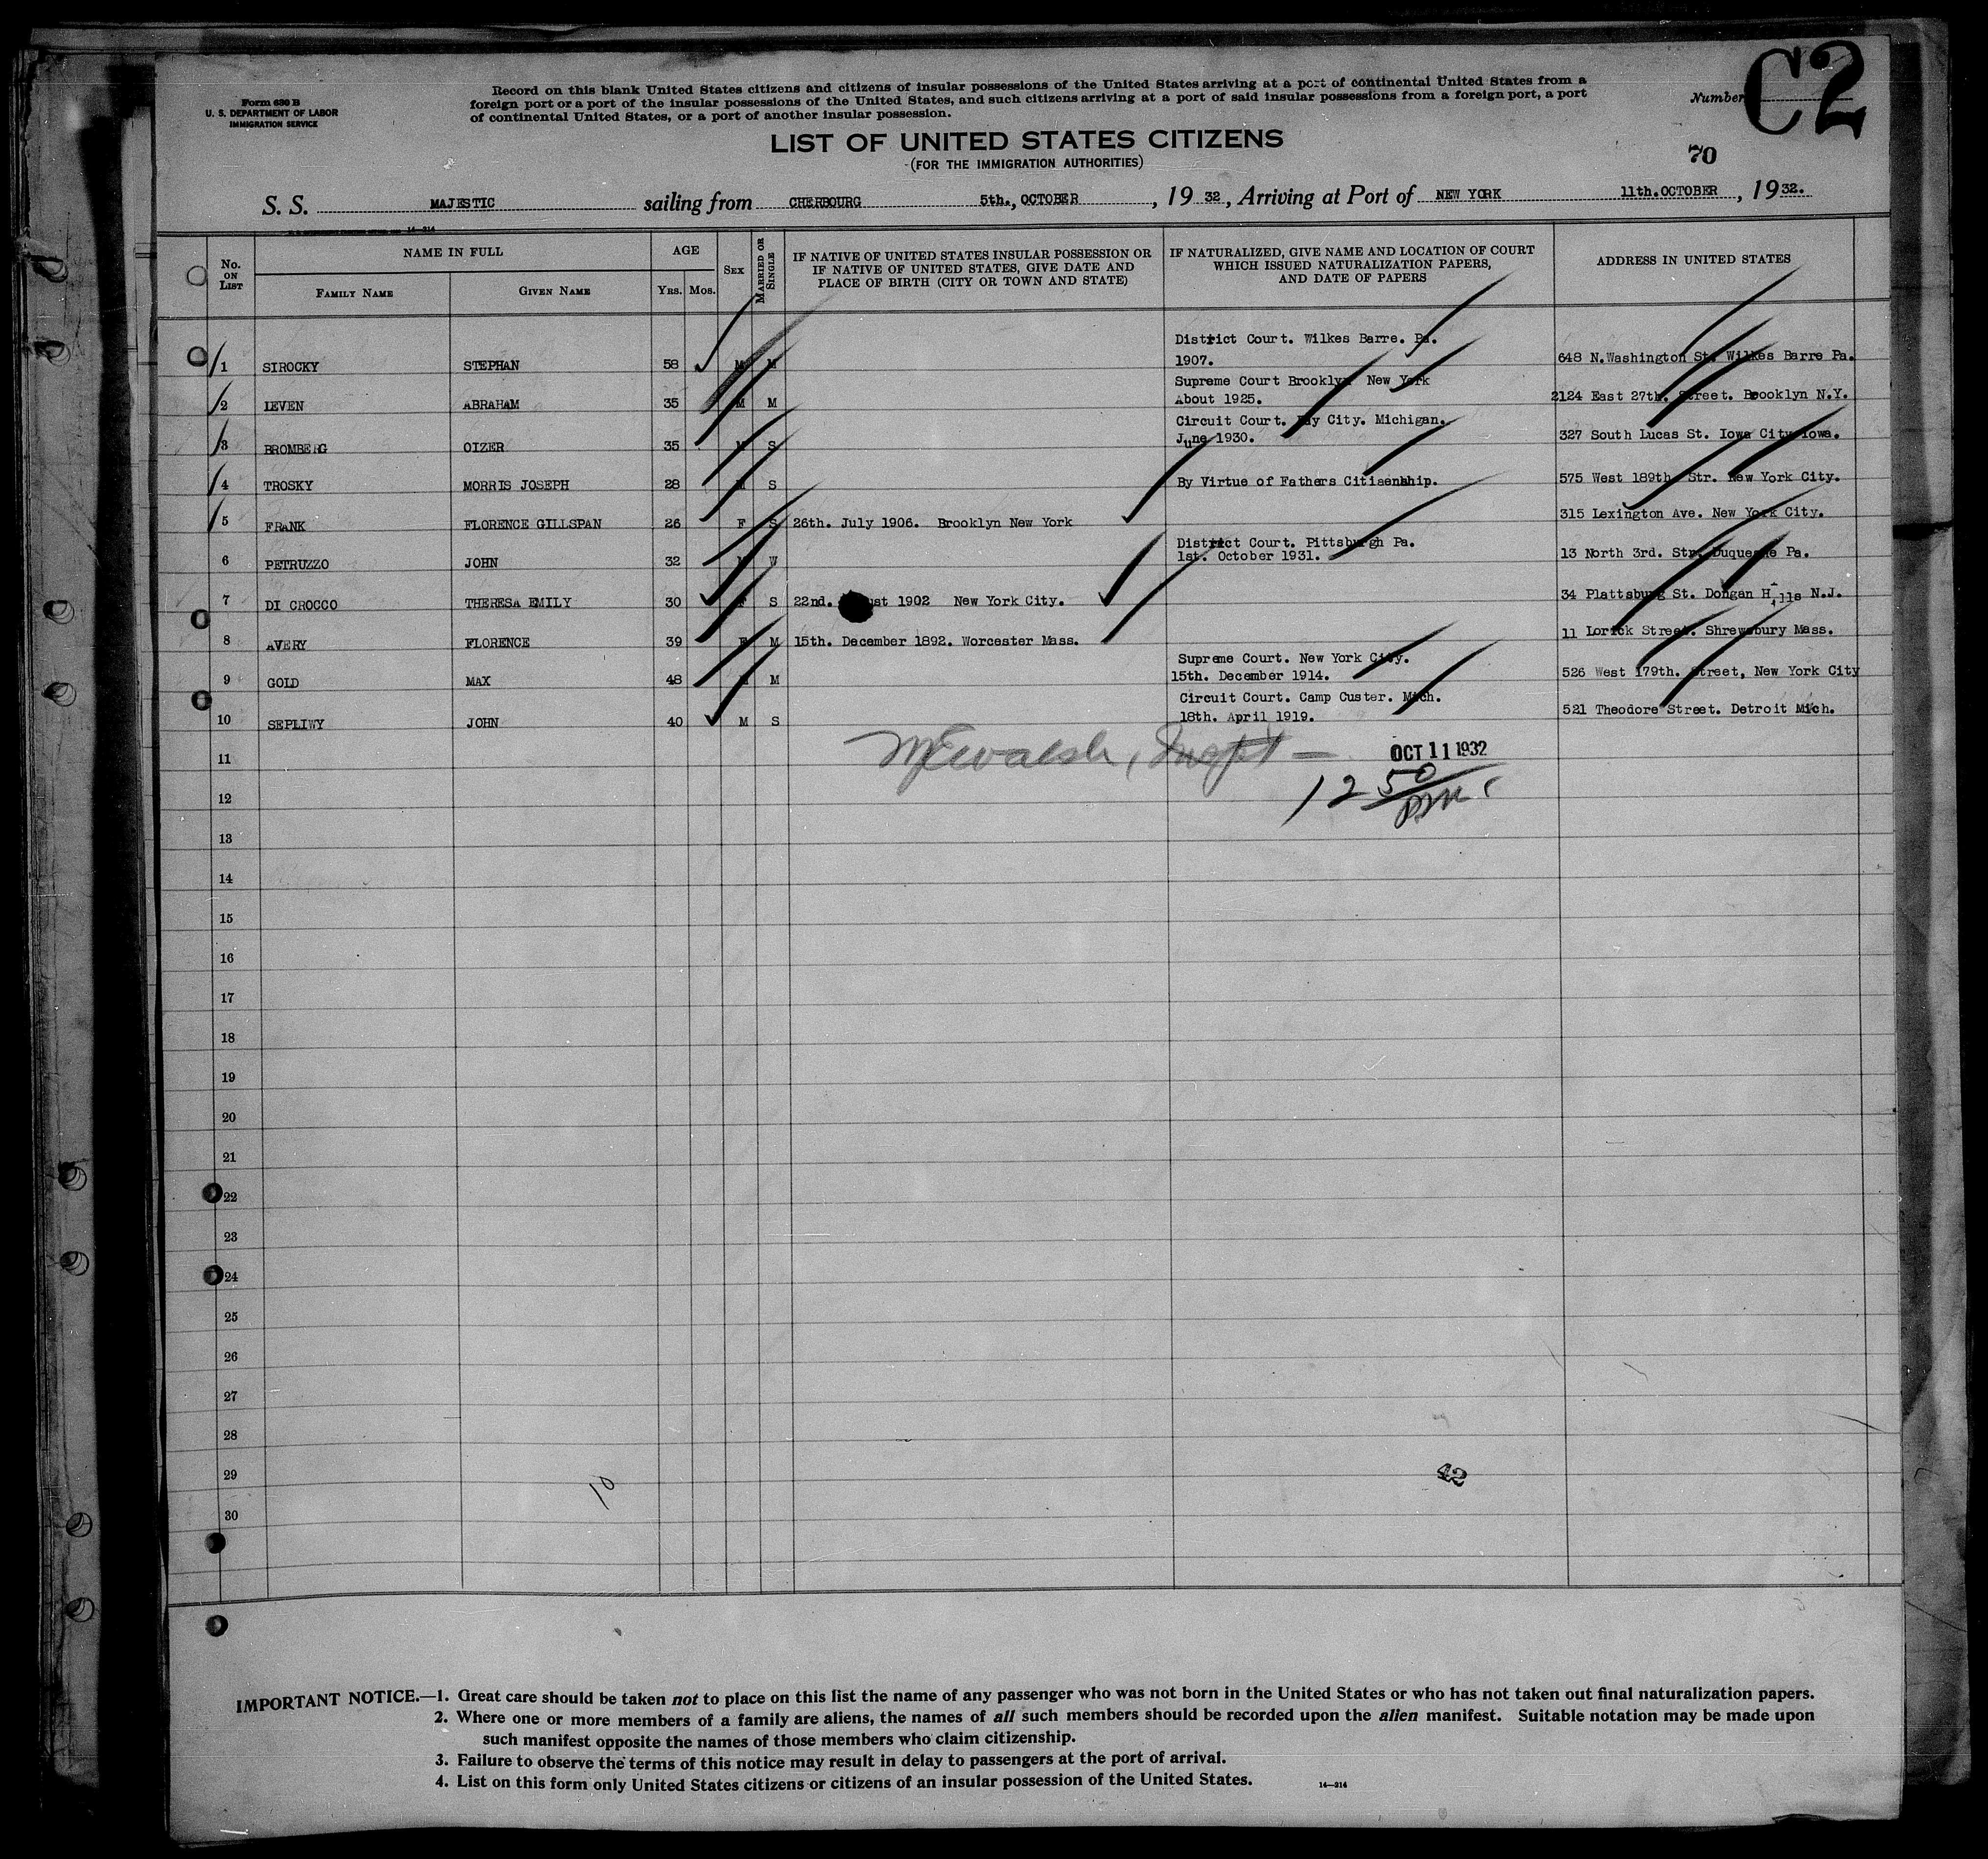 C2
Form 630 B
U. S. DEPARTMENT OF LABOR
IMMIGRATION SERVICE
Record on this blank United States citizens and citizens of insular possessions of the United States arriving at a port of continental United States from a
foreign port or a port of the insular possessions of the United States, and such citizens arriving at a port of said insular possessions from a foreign port, a port
of continental United States, or a port of another insular possession.
Number
LIST OF UNITED STATES CITIZENS
(FOR THE IMMIGRATION AUTHORITIES)
70
S. S. MAJESTIC sailing from CHERBOURG 5th., OCTOBER, 1932, Arriving at Port of NEW YORK 11th. OCTOBER, 1932.
14—214
No. ON LIST
NAME IN FULL
FAMILY NAME GIVEN NAME
AGE
YRS. MOS.
SEX
MARRIED OR SINGLE
IF NATIVE OF UNITED STATES INSULAR POSSESSION OR
IF NATIVE OF UNITED STATES, GIVE DATE AND
PLACE OF BIRTH (CITY OR TOWN AND STATE)
IF NATURALIZED, GIVE NAME AND LOCATION OF COURT
WHICH ISSUED NATURALIZATION PAPERS,
AND DATE OF PAPERS
ADDRESS IN UNITED STATES
1 SIROCKY STEPHAN 58 M M District Court. Wilkes Barre. Pa.
1907. 648 N.Washington St. Wilkes Barre Pa.
2 LEVEN ABRAHAM 35 M M Supreme Court Brooklyn New York
About 1925. 2124 East 27th. Street. Brooklyn N.Y.
3 BROMBERG OIZER 35 M S Circuit Court. Bay City. Michigan.
June 1930. 327 South Lucas St. Iowa City Iowa.
4 TROSKY MORRIS JOSEPH 28 M S By Virtue of Fathers Citisenhhip. 575 West 189th. Str. New York City.
5 FRANK FLORENCE GILLSPAN 26 F S 26th. July 1906. Brooklyn New York 315 Lexington Ave. New York City.
6 PETRUZZO JOHN 32 M W District Court. Pittsburgh Pa.
1st. October 1931. 13 North 3rd. Str. Duquesne Pa.
7 DI CROCCO THERESA EMILY 30 F S 22nd. August 1902 New York City. 34 Plattsburg St. Dongan Hills N.J.
8 AVERY FLORENCE 39 F M 15th. December 1892. Worcester Mass. 11 Lorick Street. Shrewsbury Mass.
9 GOLD MAX 48 M M Supreme Court. New York City.
15th. December 1914. 526 West 179th. Street, New York City
10 SEPLIWY JOHN 40 M S Circuit Court. Camp Custer. Mich.
18th. April 1919. 521 Theodore Street. Detroit Mich.
11 OCT 11 1932
12 12 50 PM
13
14
15
16
17
18
19
20
21
22
23
24
25
26
27
28
29 10 42
30
IMPORTANT NOTICE.—1. Great care should be taken not to place on this list the name of any passenger who was not born in the United States or who has not taken out final naturalization papers.
2. Where one or more members of a family are aliens, the names of all such members should be recorded upon the alien manifest. Suitable notation may be made upon
such manifest opposite the names of those members who claim citizenship.
3. Failure to observe the terms of this notice may result in delay to passengers at the port of arrival.
4. List on this form only United States citizens or citizens of an insular possession of the United States.
14—214